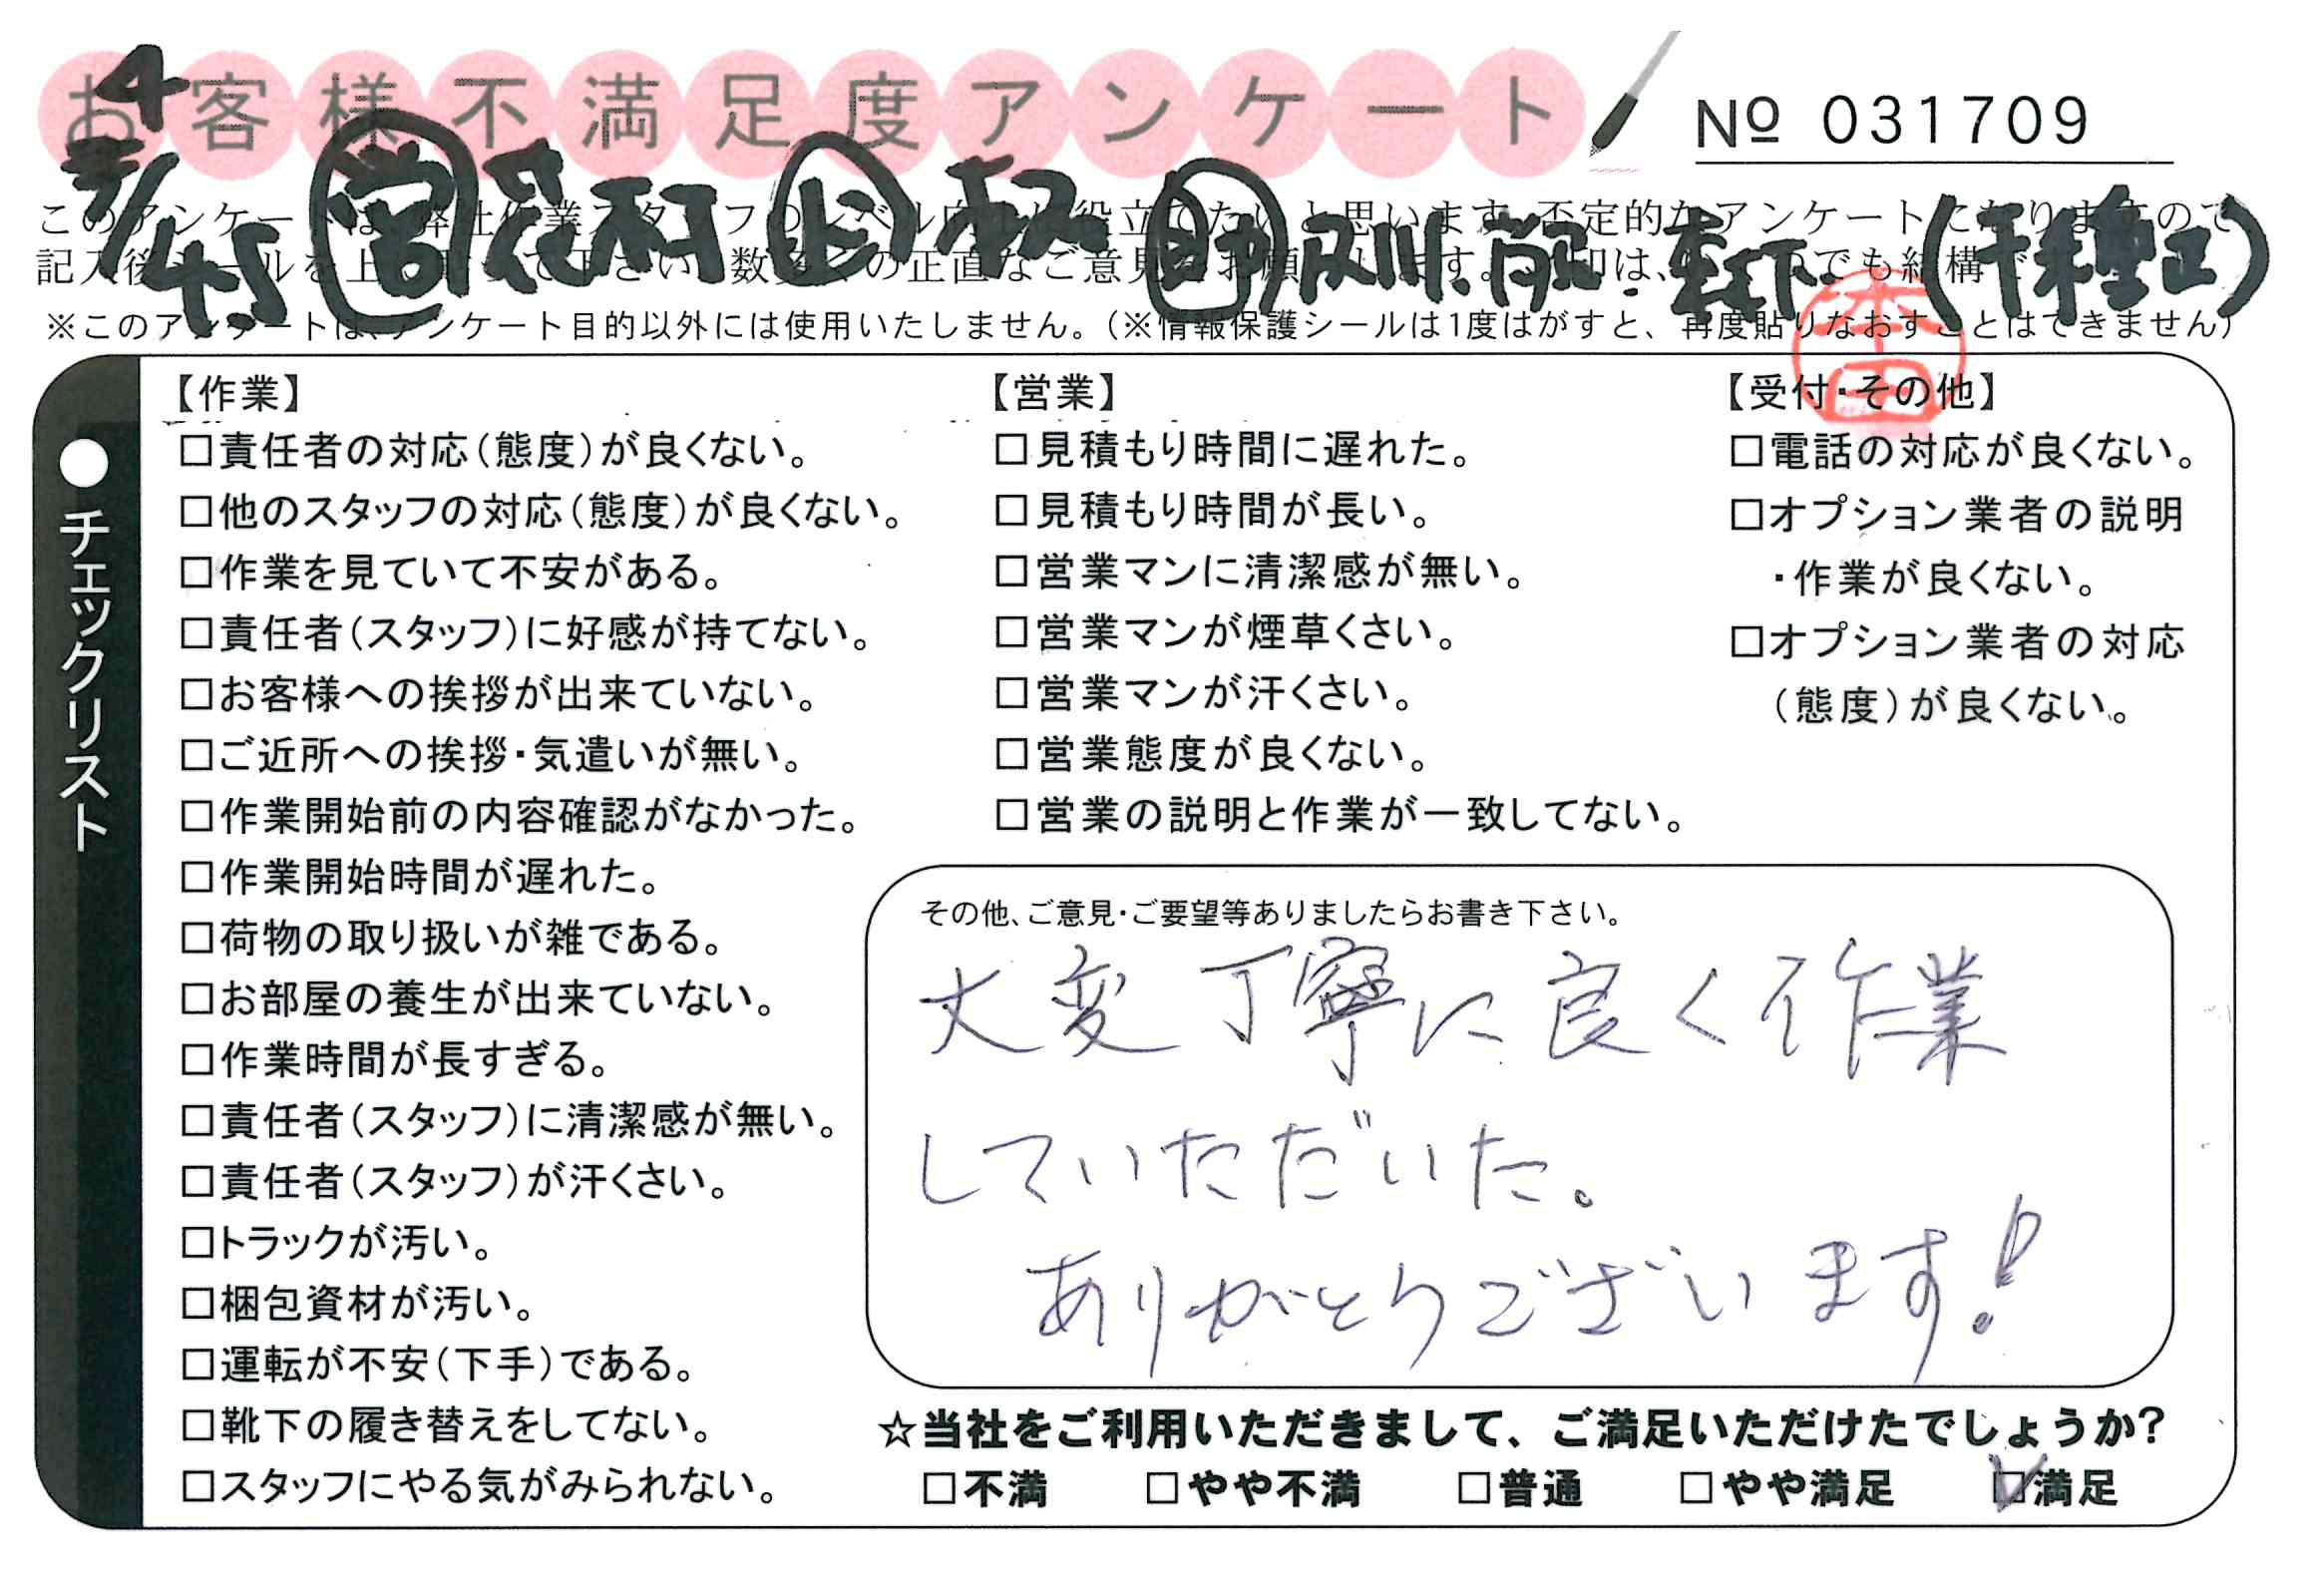 お客様不満足度アンケート
№ 031709
4
/45 営 花村
(千種区)
このアンケートは、弊社作業スタッフのレベル向上に役立てたいと思います。否定的なアンケートになりますので
記入後シールを上 正直なご意見をお願 でも結構で
※このアンケートは、アンケート目的以外には使用いたしません。(※情報保護シールは1度はがすと、再度貼りなおすことはできません)
本田
●チェックリスト
【作業】
□責任者の対応(態度)が良くない。
□他のスタッフの対応(態度)が良くない。
□作業を見ていて不安がある。
□責任者(スタッフ)に好感が持てない。
□お客様への挨拶が出来ていない。
□ご近所への挨拶・気遣いが無い。
□作業開始前の内容確認がなかった。
□作業開始時間が遅れた。
□荷物の取り扱いが雑である。
□お部屋の養生が出来ていない。
□作業時間が長すぎる。
□責任者(スタッフ)に清潔感が無い。
□責任者(スタッフ)が汗くさい。
□トラックが汚い。
□梱包資材が汚い。
□運転が不安(下手)である。
□靴下の履き替えをしてない。
□スタッフにやる気がみられない。
【営業】
□見積もり時間に遅れた。
□見積もり時間が長い。
□営業マンに清潔感が無い。
□営業マンが煙草くさい。
□営業マンが汗くさい。
□営業態度が良くない。
□営業の説明と作業が一致してない。
【受付・その他】
□電話の対応が良くない。
□オプション業者の説明
・作業が良くない。
□オプション業者の対応
(態度)が良くない。
その他、ご意見・ご要望等ありましたらお書き下さい。
大変丁寧に良く作業
していただいた。
ありがとうございます!
☆当社をご利用いただきまして、ご満足いただけたでしょうか?
□不満 □やや不満 □普通 □やや満足 ☑満足